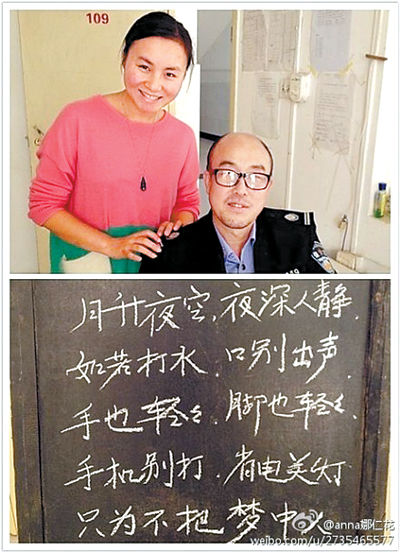 109
月升夜空,夜深人静.
如若打水,口别出声.
手也轻々,脚也轻々.
手机别打,省电关灯
只为不把梦中人
@anna娜仁花
weibo.com/u/2735465577